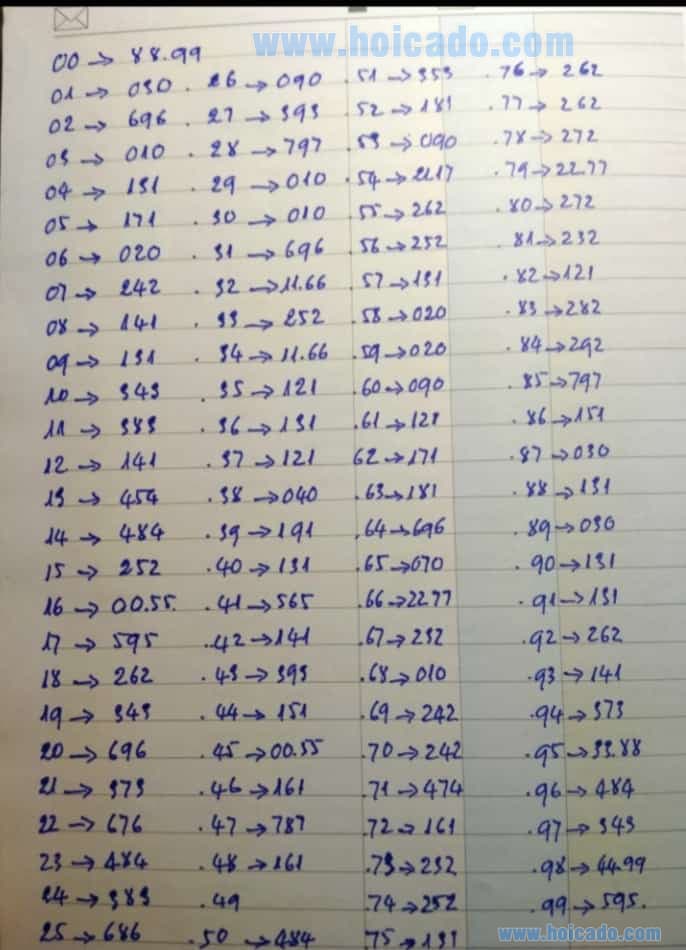 www.hoicado.com
00 → 88.99
01 → 030 . 26 → 090 . 51 → 353 . 76 → 262
02 → 696 . 27 → 393 . 52 → 181 . 77 → 262
03 → 010 . 28 → 797 . 53 → 090 . 78 → 272
04 → 131 . 29 → 010 . 54 → 2117 . 79 → 22.77
05 → 171 . 30 → 010 . 55 → 262 . 80 → 272
06 → 020 . 31 → 696 . 56 → 252 . 81 → 232
07 → 242 . 32 → 11.66 . 57 → 131 . 82 → 121
08 → 141 . 33 → 252 . 58 → 020 . 83 → 282
09 → 131 . 34 → 11.66 . 59 → 020 . 84 → 292
10 → 343 . 35 → 121 . 60 → 090 . 85 → 797
11 → 383 . 36 → 131 . 61 → 121 . 86 → 151
12 → 141 . 37 → 121 62 → 171 . 87 → 030
13 → 454 . 38 → 040 . 63 → 181 . 88 → 131
14 → 484 . 39 → 191 . 64 → 696 . 89 → 030
15 → 252 . 40 → 131 . 65 → 070 . 90 → 131
16 → 00.55. . 41 → 565 . 66 → 22.77 . 91 → 131
17 → 595 . 42 → 141 . 67 → 232 . 92 → 262
18 → 262 . 43 → 393 . 68 → 010 . 93 → 141
19 → 343 . 44 → 151 . 69 → 242 . 94 → 373
20 → 696 . 45 → 00.55 . 70 → 242 . 95 → 33.88
21 → 373 . 46 → 161 . 71 → 474 . 96 → 484
22 → 676 . 47 → 787 . 72 → 161 . 97 → 343
23 → 484 . 48 → 161 . 73 → 232 . 98 → 44.99
24 → 383 . 49 . 74 → 252 . 99 → 595.
25 → 686 . 50 → 484 . 75 → 131
www.hoicado.com